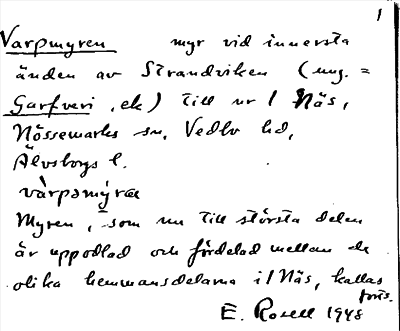 1
Varpmyren myr vid innersta
änden av Strandviken (ung. =
Garfveri, ek) till nr 1 Näs,
Nössemarks sn, Vedbo hd,
Älvsborgs l.
vàrpsmýræ
Myren, som nu till största delen
är uppodlad och fördelad mellan de
olika hemmansdelarna i 1 Näs, kallas
forts.
E. Rosell 1948